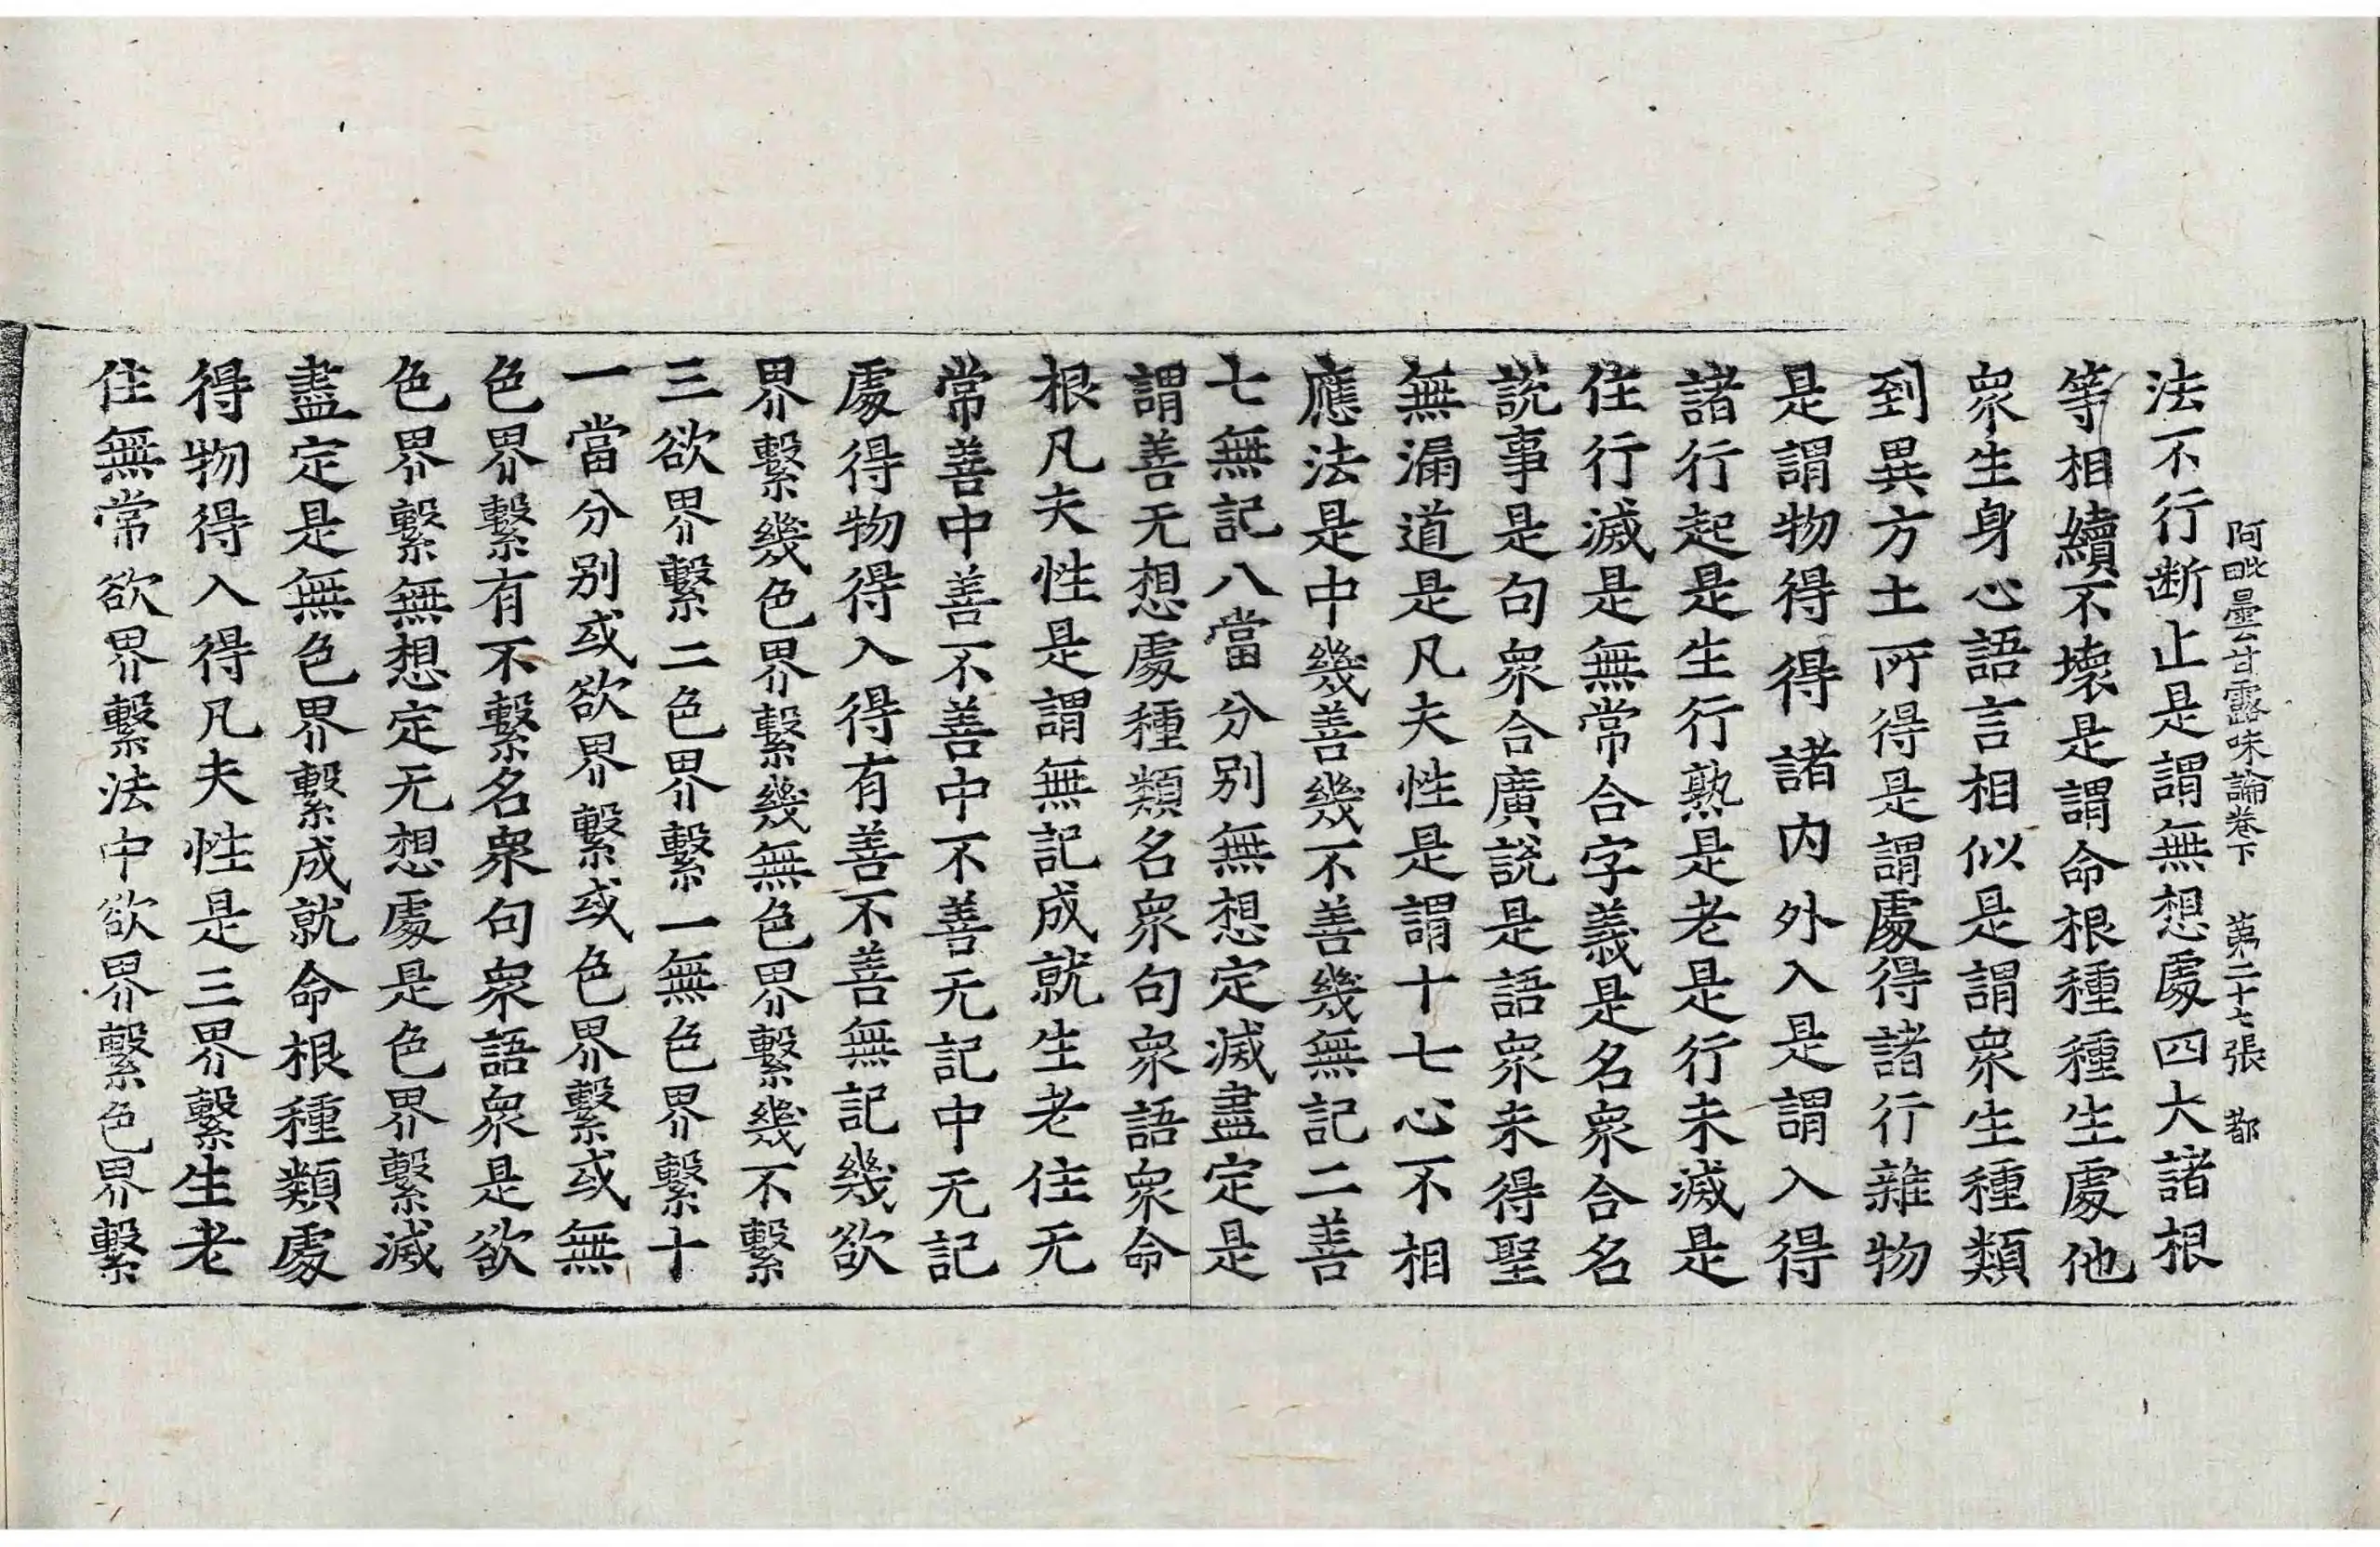 阿毗曇甘露味論卷下 第二十七張 都
法不行断止是謂無想處四大諸根
等相續不壞是謂命根種種生處他
衆生身心語言相似是謂衆生種類
到異方土所得是謂處得諸行雜物
是謂物得得諸内外入是謂入得
諸行起是生行熟是老是行未滅是
住行滅是無常合字義是名衆合名
說事是句衆合廣說是語衆未得聖
無漏道是凡夫性是謂十七心不相
應法是中幾善幾不善幾無記二善
七無記八當分别無想定滅盡定是
謂善无想處種類名衆句衆語衆命
根凡夫性是謂無記成就生老住无
常善中善不善中不善无記中无記
處得物得入得有善不善無記幾欲
界繫幾色界繫幾無色界繫幾不繫
三欲界繫二色界繫一無色界繫十
一當分别或欲界繫或色界繫或無
色界繫有不繫名衆句衆語衆是欲
色界繫無想定无想處是色界繫滅
盡定是無色界繫成就命根種類處
得物得入得凡夫性是三界繫生老
住無常欲界繫法中欲界繫色界繫